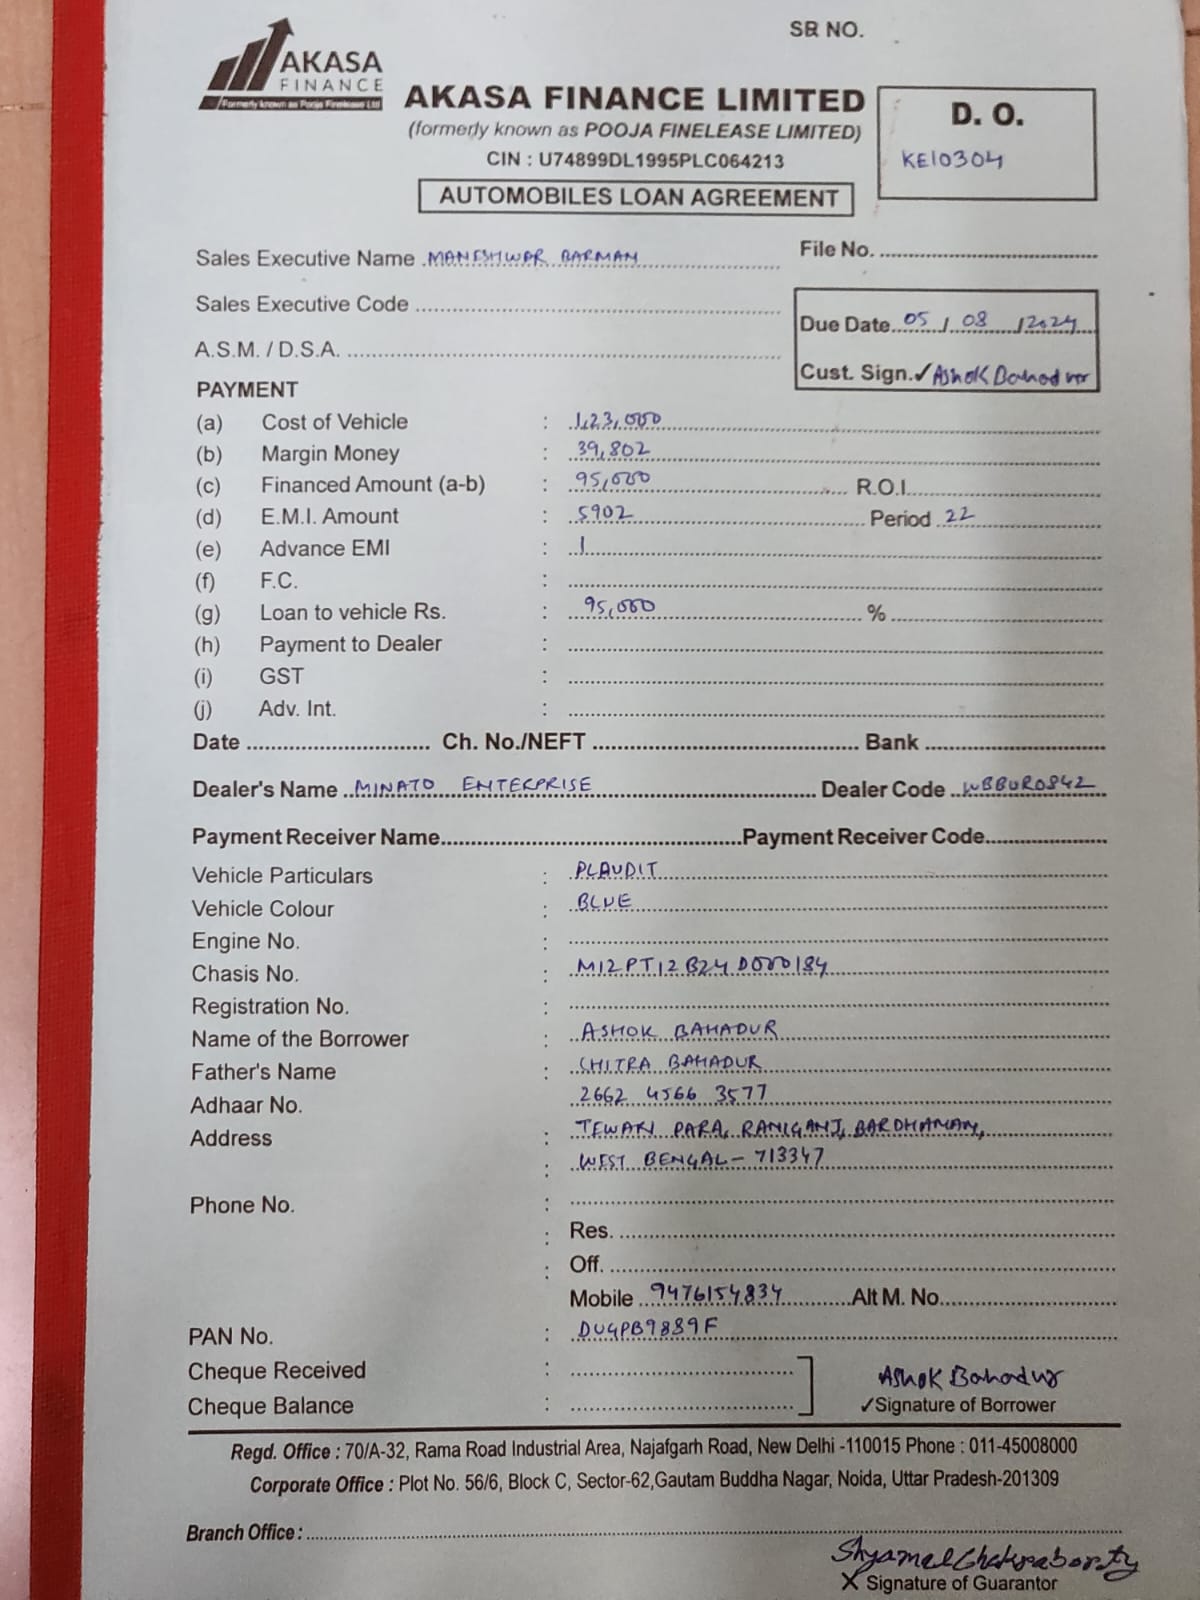 SR NO.
AKASA
FINANCE
Formerly known as Pooja Finelease Ltd
AKASA FINANCE LIMITED
(formerly known as POOJA FINELEASE LIMITED)
CIN : U74899DL1995PLC064213
AUTOMOBILES LOAN AGREEMENT
D. O.
KE10304
Sales Executive Name MANESHWAR BARMAN
File No.
Sales Executive Code
Due Date 05 / 08 / 2024
A.S.M. / D.S.A.
Cust. Sign.✓ Ashok Bahadur
PAYMENT
(a) Cost of Vehicle : 1,23,000
(b) Margin Money : 39,802
(c) Financed Amount (a-b) : 95,000 R.O.I.
(d) E.M.I. Amount : 5902 Period 22
(e) Advance EMI : 1
(f) F.C. :
(g) Loan to vehicle Rs. : 95,000 %
(h) Payment to Dealer :
(i) GST :
(j) Adv. Int. :
Date Ch. No./NEFT Bank
Dealer's Name MINATO ENTERPRISE Dealer Code WBBUR0842
Payment Receiver Name Payment Receiver Code
Vehicle Particulars : PLAUDIT
Vehicle Colour : BLUE
Engine No. :
Chasis No. : M12PT12B24D000184
Registration No. :
Name of the Borrower : ASHOK BAHADUR
Father's Name : CHITRA BAHADUR
Adhaar No. 2662 4566 3577
Address : TEWARI PARA, RANIGANJ, BARDHAMAN,
: WEST BENGAL - 713347
Phone No. :
: Res.
: Off.
Mobile 9476154834 Alt M. No.
PAN No. : DUGPB9889F
Cheque Received :
Cheque Balance :
Ashok Bahadur
✓Signature of Borrower
Regd. Office : 70/A-32, Rama Road Industrial Area, Najafgarh Road, New Delhi -110015 Phone : 011-45008000
Corporate Office : Plot No. 56/6, Block C, Sector-62,Gautam Buddha Nagar, Noida, Uttar Pradesh-201309
Branch Office :
Shyamal Chakraborty
X Signature of Guarantor